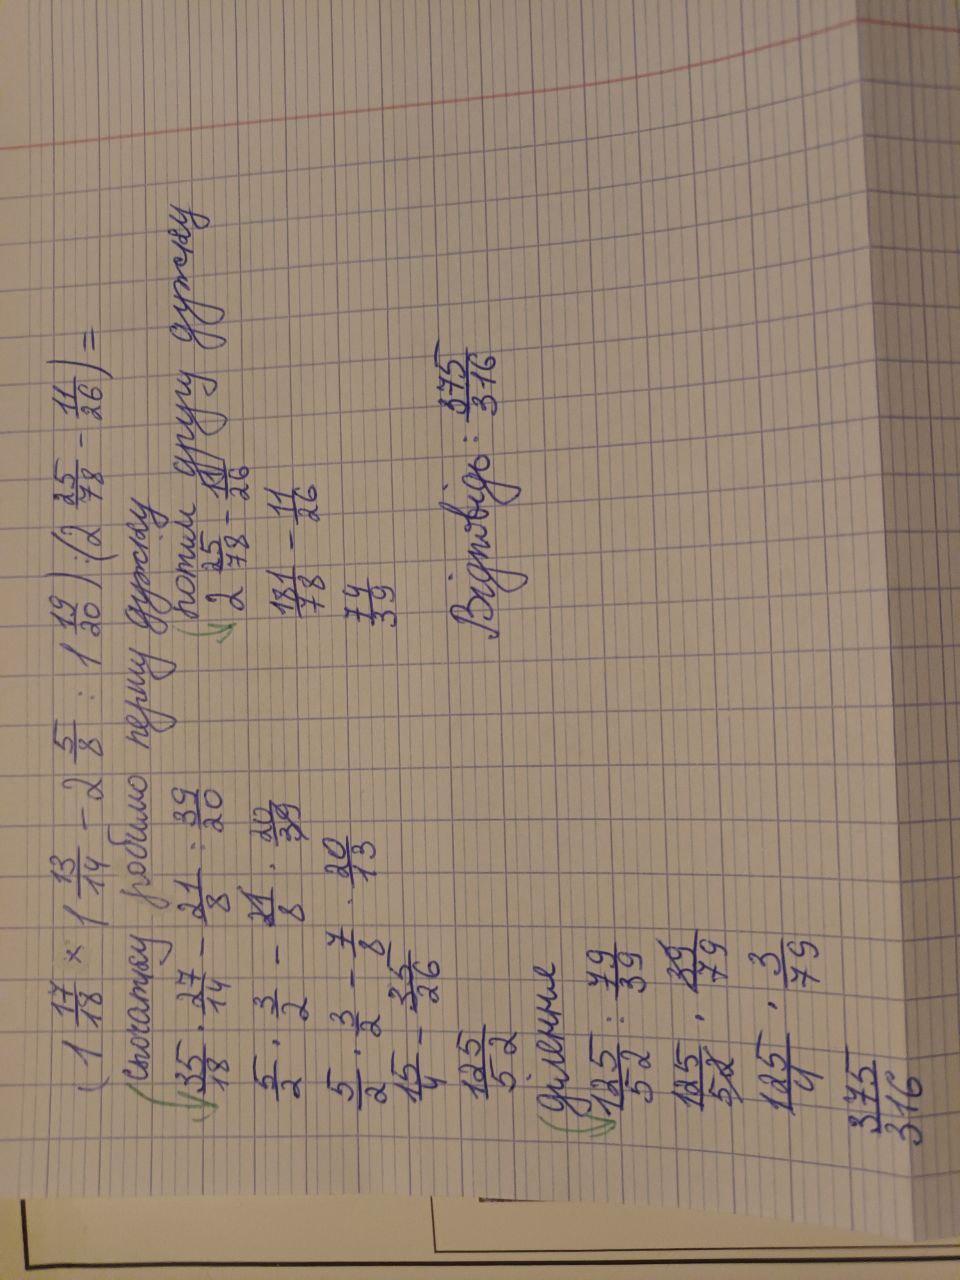 (1 17/18 × 1 13/14 - 2 5/8 : 1 19/20) : (2 25/78 - 11/26) =
Спочатку робимо першу дужку
35/18 · 27/14 - 21/8 : 39/20
5/2 · 3/2 - 21/8 · 20/39
5/2 · 3/2 - 7/8 · 20/13
15/4 - 35/26
125/52
потим другу дужку
2 25/78 - 11/26
181/78 - 11/26
74/39
діленния
125/52 : 79/39
125/52 · 39/79
125/4 · 3/79
375/316
Відповідь: 375/316